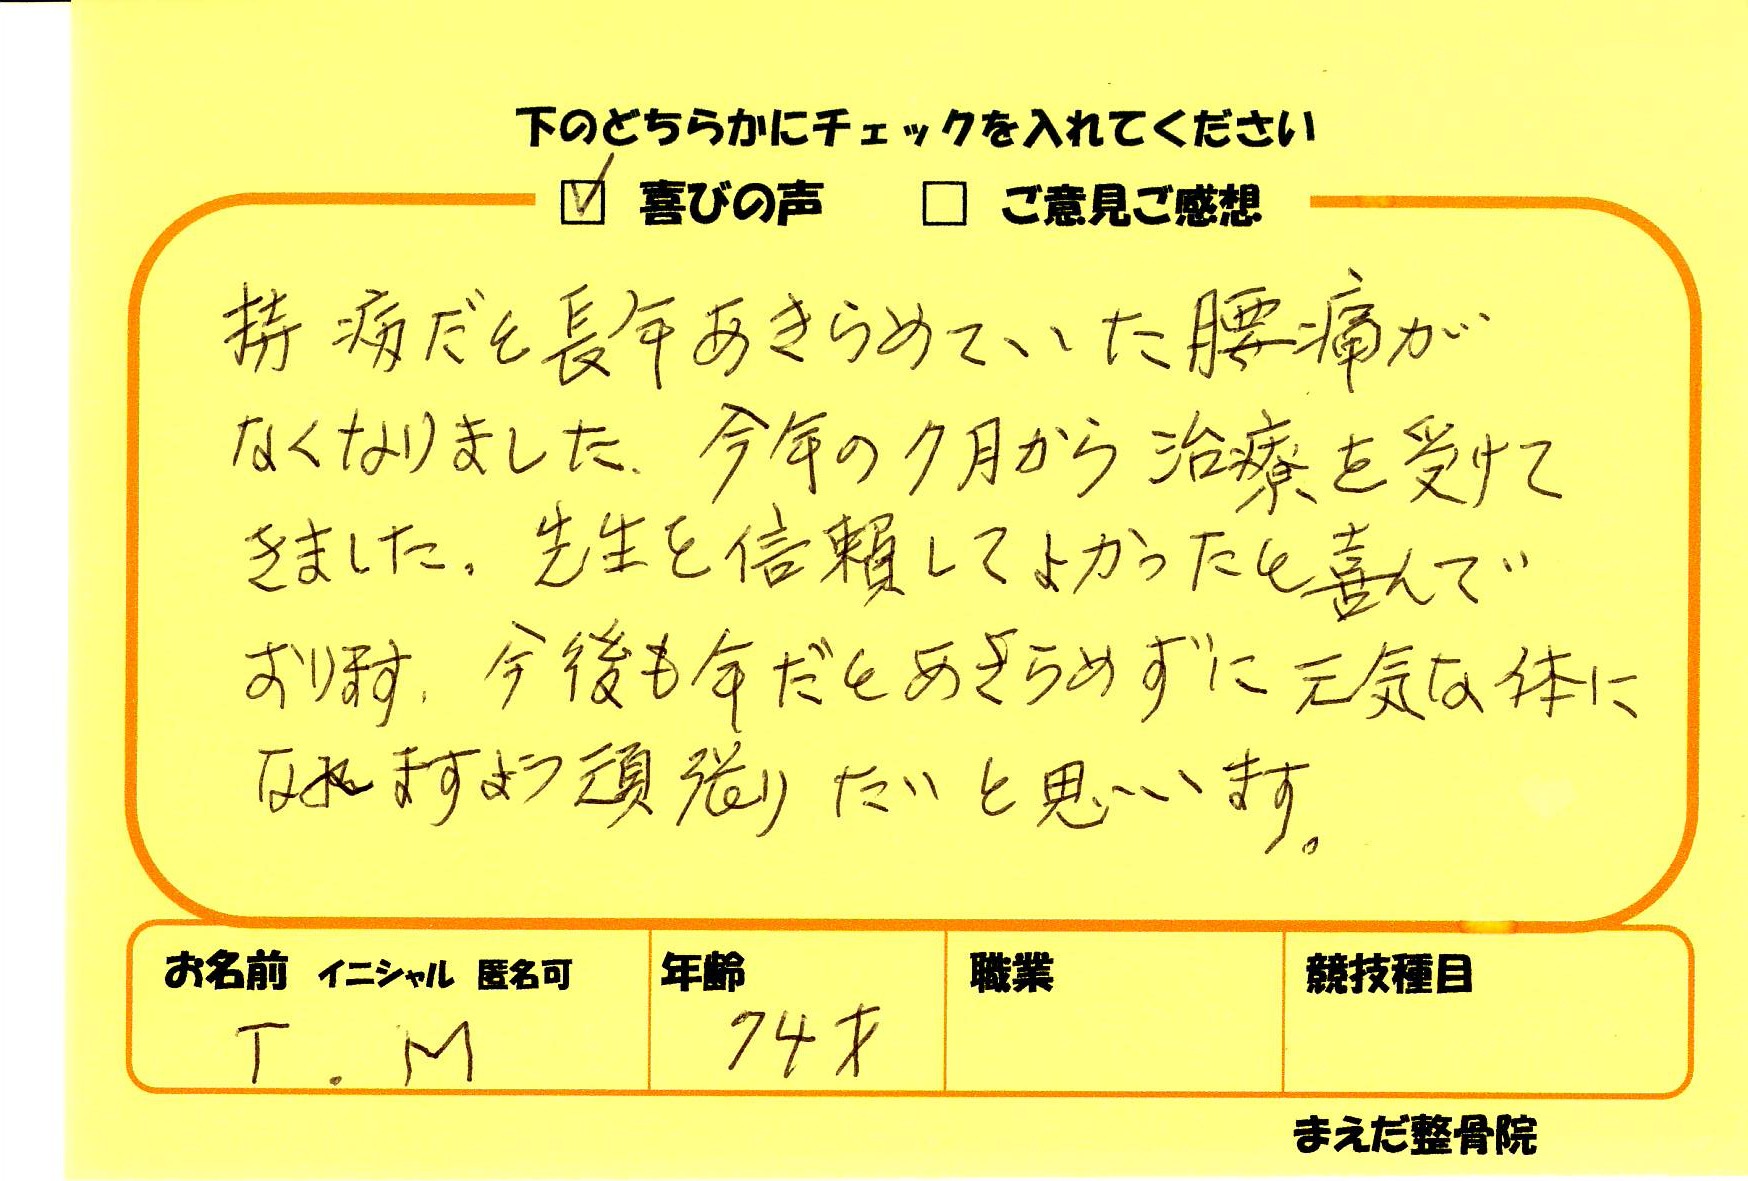 下のどちらかにチェックを入れてください
☑ 喜びの声 □ ご意見ご感想
持病だと長年あきらめていた腰痛が
なくなりました。今年の7月から治療を受けて
きました。先生を信頼してよかったと喜んで
おります。今後も年だとあきらめずに元気な体に
なれますよう頑張りたいと思います。
お名前 イニシャル 匿名可 年齢 職業 競技種目
T.M 74才
まえだ整骨院